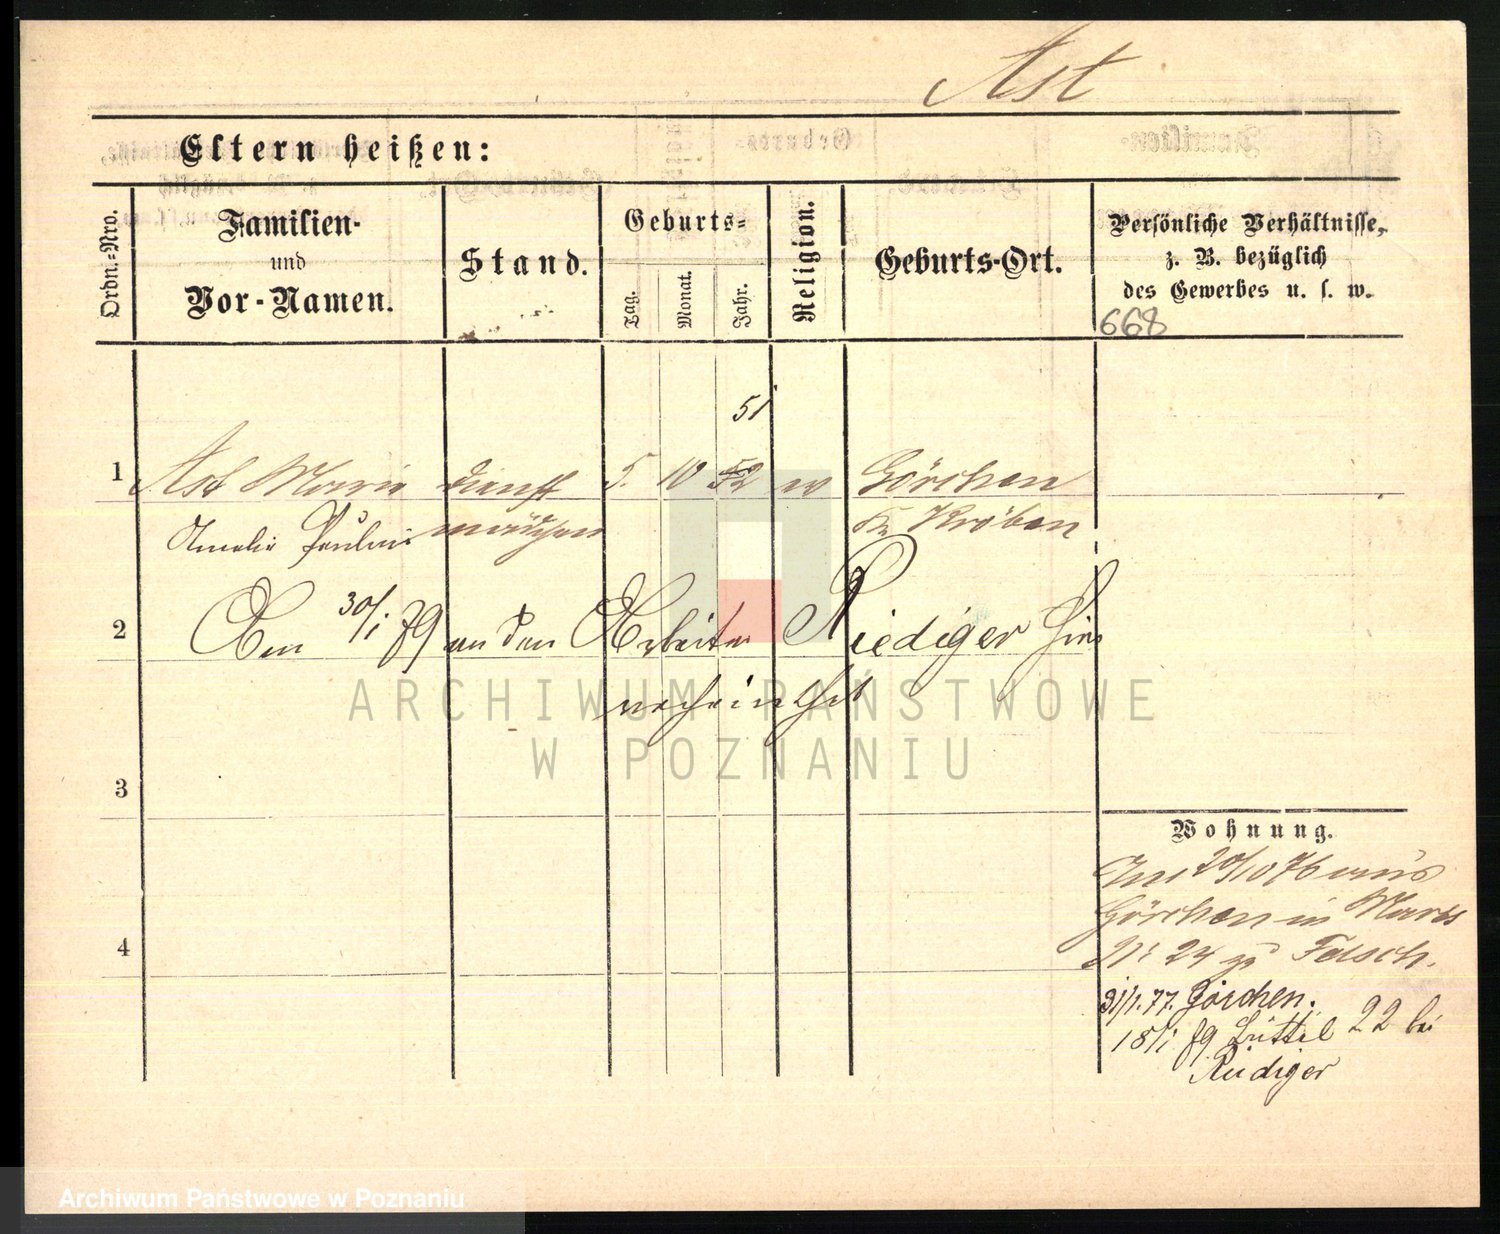 Ast
Eltern heißen:
Ordn.-Nro.
Familien-
und
Vor-Namen.
Stand.
Geburts-
Tag.
Monat.
Jahr.
Religion.
Geburts-Ort.
Persönliche Verhältnisse,
z. B. bezüglich
des Gewerbes u. s. w.
668
51
1 Ast Marie Dienst 5. 10 52 ev Görchen
Amalie Pauline mädchen Kr Kröben
2 Am 30/1 79 an den Arbeiter Riediger hier
verheirathet
ARCHIWUM PAŃSTWOWE
W POZNANIU
3
Wohnung.
20/10 76 aus
Görchen in
4
24 zu
31/1. 77. Görchen.
18/1 79 Büttel 22 bei
Riediger
Archiwum Państwowe w Poznaniu